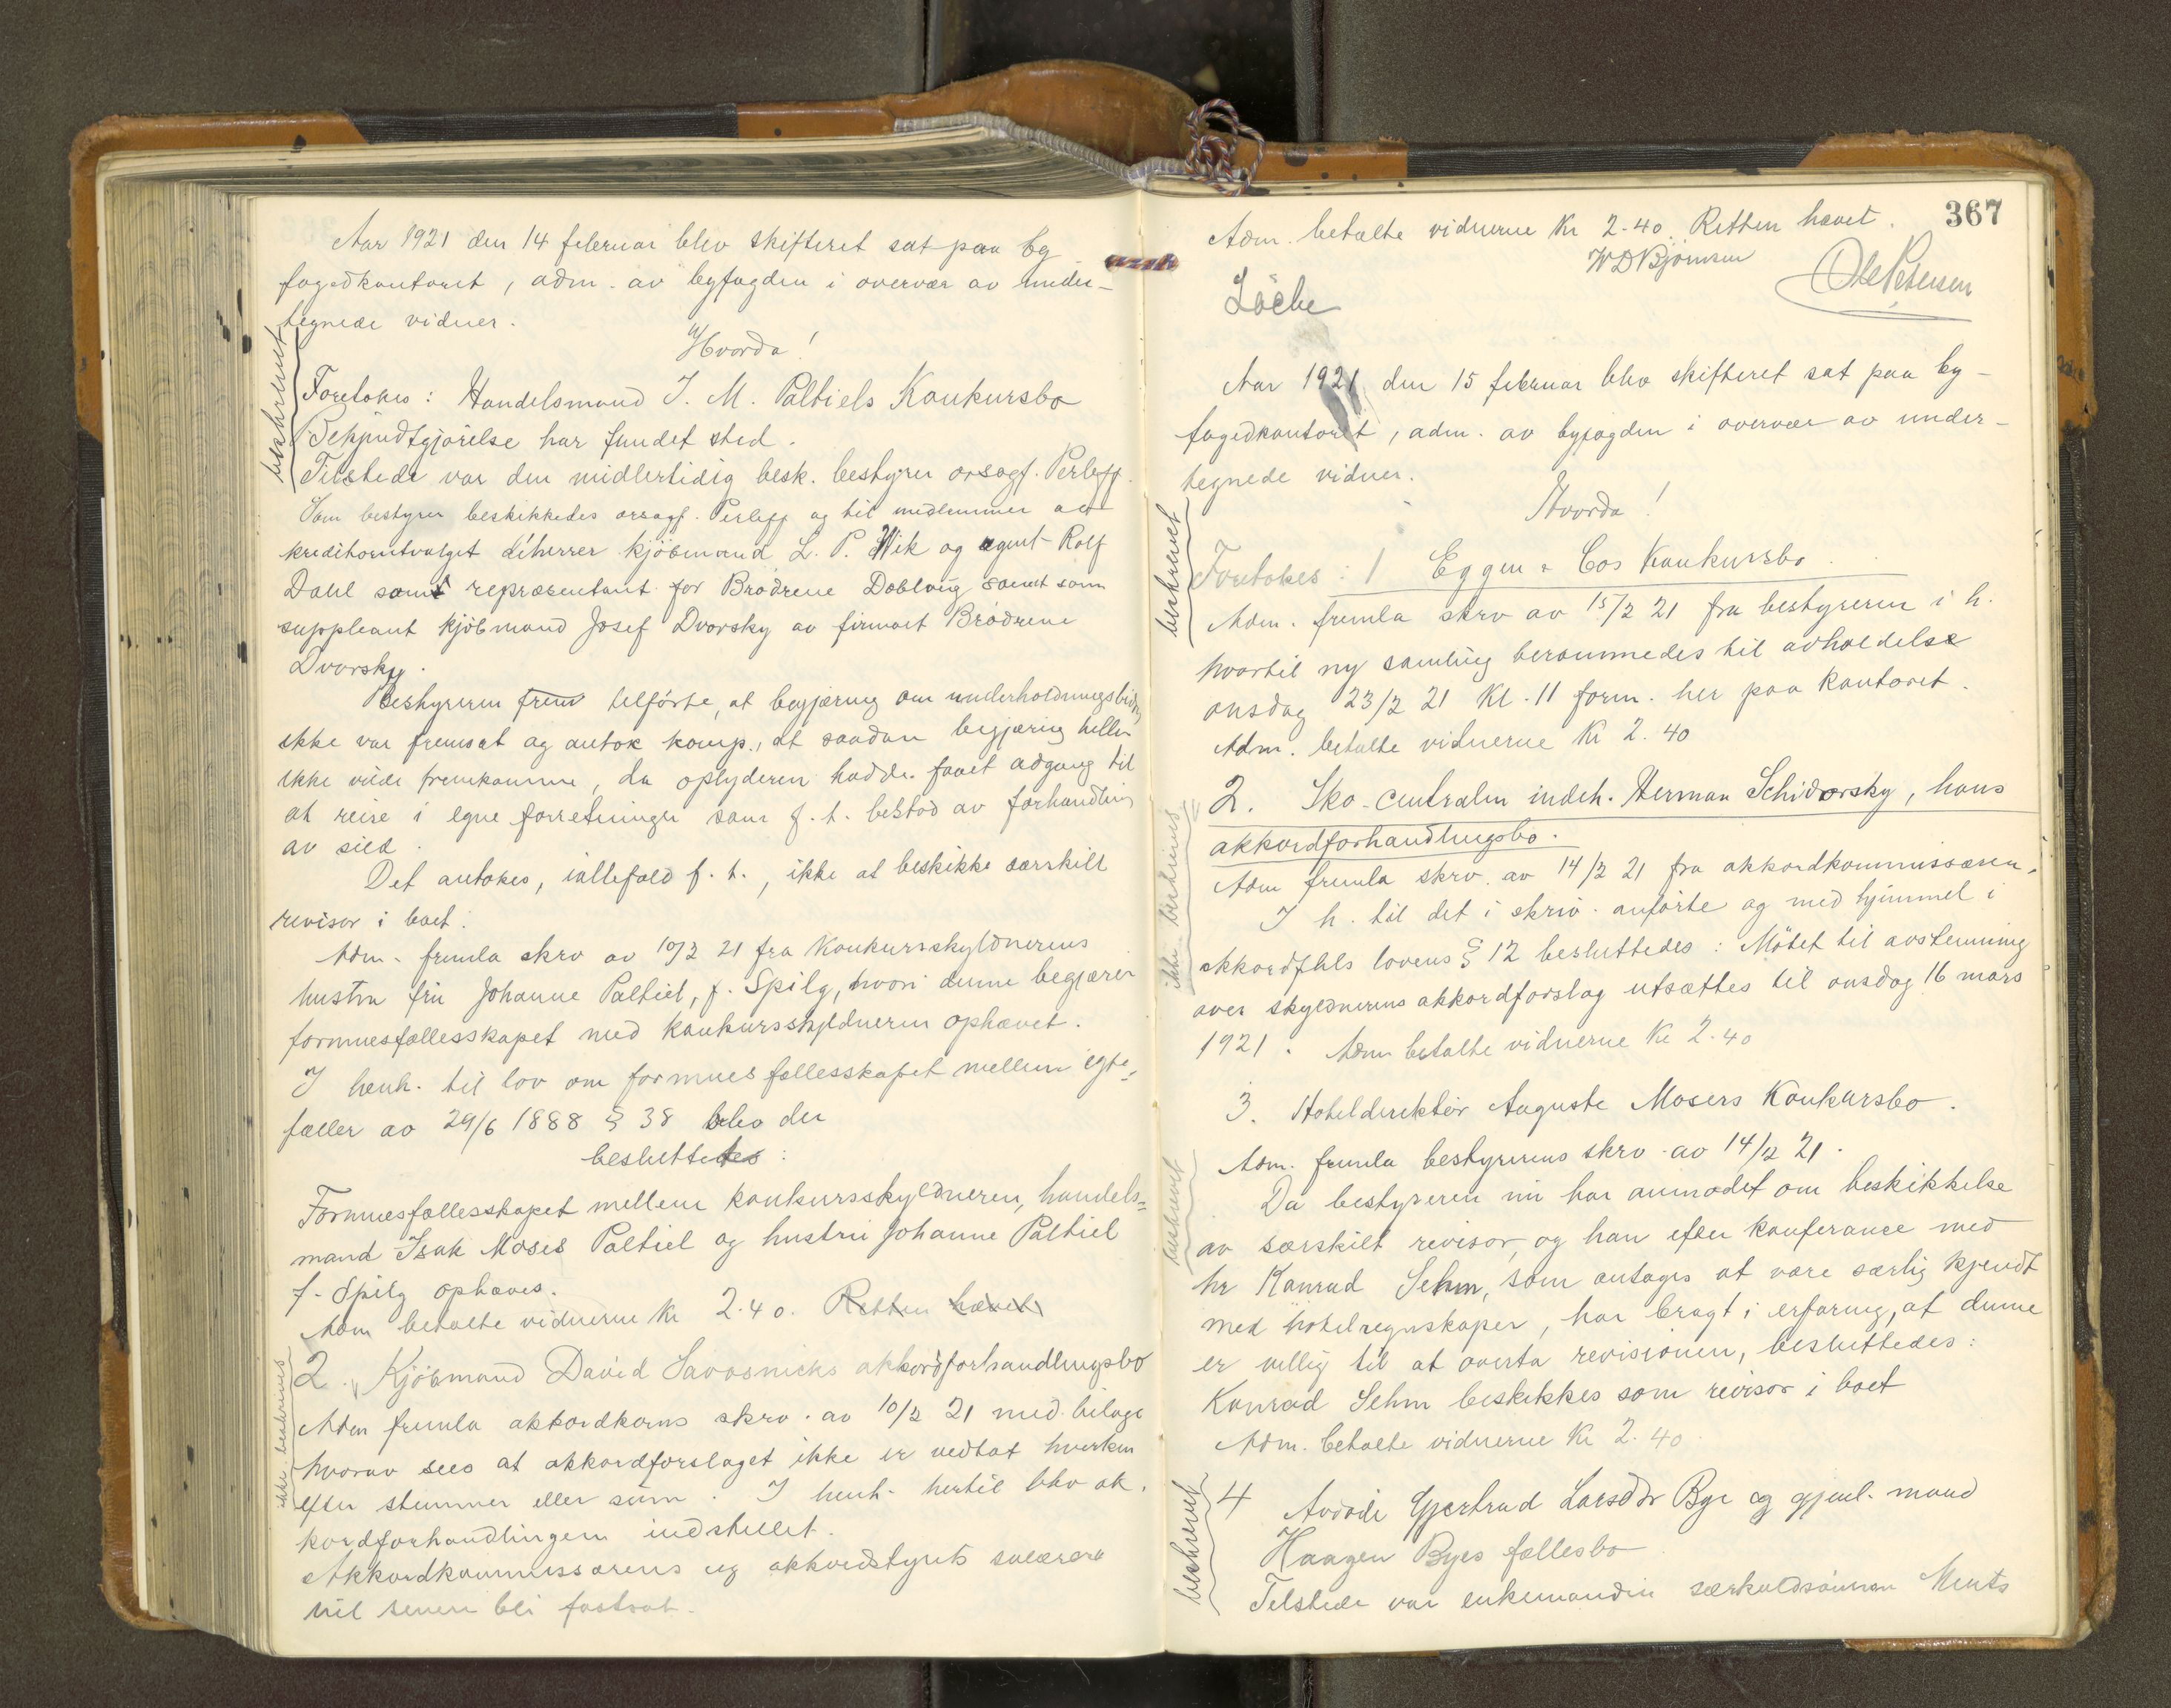 Aar 1921 den 14 februar blev skifteret sat paa by
fogedkontoret, adm. av byfogden i overvær av under-
tegnede vidner.
Hvorda!
beskrevet
Foretokes: Handelsmand I. M. Paltiels Konkursbo
Bekjendtgjørelse har fundet sted.
Tilstede var den midlertidig besk. bestyrer orsagf. Perleff.
Som bestyrer beskikkedes orsagf. Perleff og til medlemmer av
kreditorutvalget d'herrer kjöbmand L. P. Wik og agent Rolf
Dahl som repræsentant for Brödrene Doblaug samt som
suppleant kjöbmand Josef Dvorsky av firmaet Brödrene
Dvorsky.
Bestyreren frem tilförte, at begjæring om underholdningsbidrag
ikke var fremsat og antok komp., at saadan begjæring heller
ikke vilde fremkomme, da oplyderen hadde faaet adgang til
at reise i egne forretninger som f. t. bestod av forhandling
av sild.
Det antokes, iallefald f. t., ikke at beskikke særskilt
revisor i boet.
Adm. fremla skrv av 10/2 21 fra Konkursskyldnerens
hustru fru Johanne Paltiel, f. Spilg, hvori denne begjærer
formuesfællesskapet med konkursskyldneren ophævet.
I henh. til lov om formuesfællesskapet mellem egte-
fæller av 29/6 1888 § 38 blev der
besluttedes:
Formuesfællesskapet mellem konkursskyldneren, handels-
mand Isak Moses Paltiel og hustru Johanne Paltiel
f. Spilg ophæves.
Adm betalte vidnerne Kr 2.40. Retten hævet
ikke beskrevet
2. Kjöbmand David Savosnicks akkordforhandlingsbo
Adm fremla akkordkoms skrv. av 10/2 21 med bilage
hvorav sees at akkordforslaget ikke er vedtat hverken
efter stemmer eller sum. I henh. hertil blev ak-
kordforhandlingen indstillet.
Akkordkommissærens og akkordstyrets salærer
vil senere bli fastsat.
367
Adm. betalte vidnerne Kr 2.40. Retten hævet.
W D Björnsen
Ole Petersen
Aar 1921 den 15 februar blev skifteret sat paa by-
fogedkontoret, adm. av byfogden i overvær av under-
tegnede vidner.
Hvorda!
beskrevet
Foretokes: 1 Eggen & Cos Konkursbo.
Adm. fremla skrv av 15/2 21 fra bestyreren i h.
hvortil ny samling berammedes til avholdelse
onsdag 23/2 21 Kl. 11 form. her paa kontoret.
Adm. betalte vidnerne Kr 2.40
ikke beskrevet
2. Sko-centralen indeh. Herman Schidorsky, hans
akkordforhandlingsbo.
Adm fremla skrv. av 14/2 21 fra akkordkommissæren.
I h. til det i skriv. anförte og med hjemmel i
akkordfhls lovens § 12 besluttedes: Mötet til avstemning
over skyldnerens akkordforslag utsættes til onsdag 16 mars
1921. Adm betalte vidnerne Kr 2.40
3. Hoteldirektör Auguste Mosers Konkursbo.
Adm. fremla bestyrerens skrv. av 14/2 21.
beskrevet
Da bestyreren nu har anmodet om beskikkelse
av særskilt revisor, og han efter konferance med
hr Konrad Sehm, som antages at være særlig kjendt
med hotelregnskaper, har bragt i erfaring, at denne
er villig til at overta revisionen, besluttedes:
Konrad Sehm beskikkes som revisor i boet
Adm. betalte vidnerne Kr 2.40.
beskrevet
4 Avdöde Gjertrud Larsdtr Bye og gjenl. mand
Haagen Byes fællesbo
Tilstede var enkemanden særkuldsönnen Ments